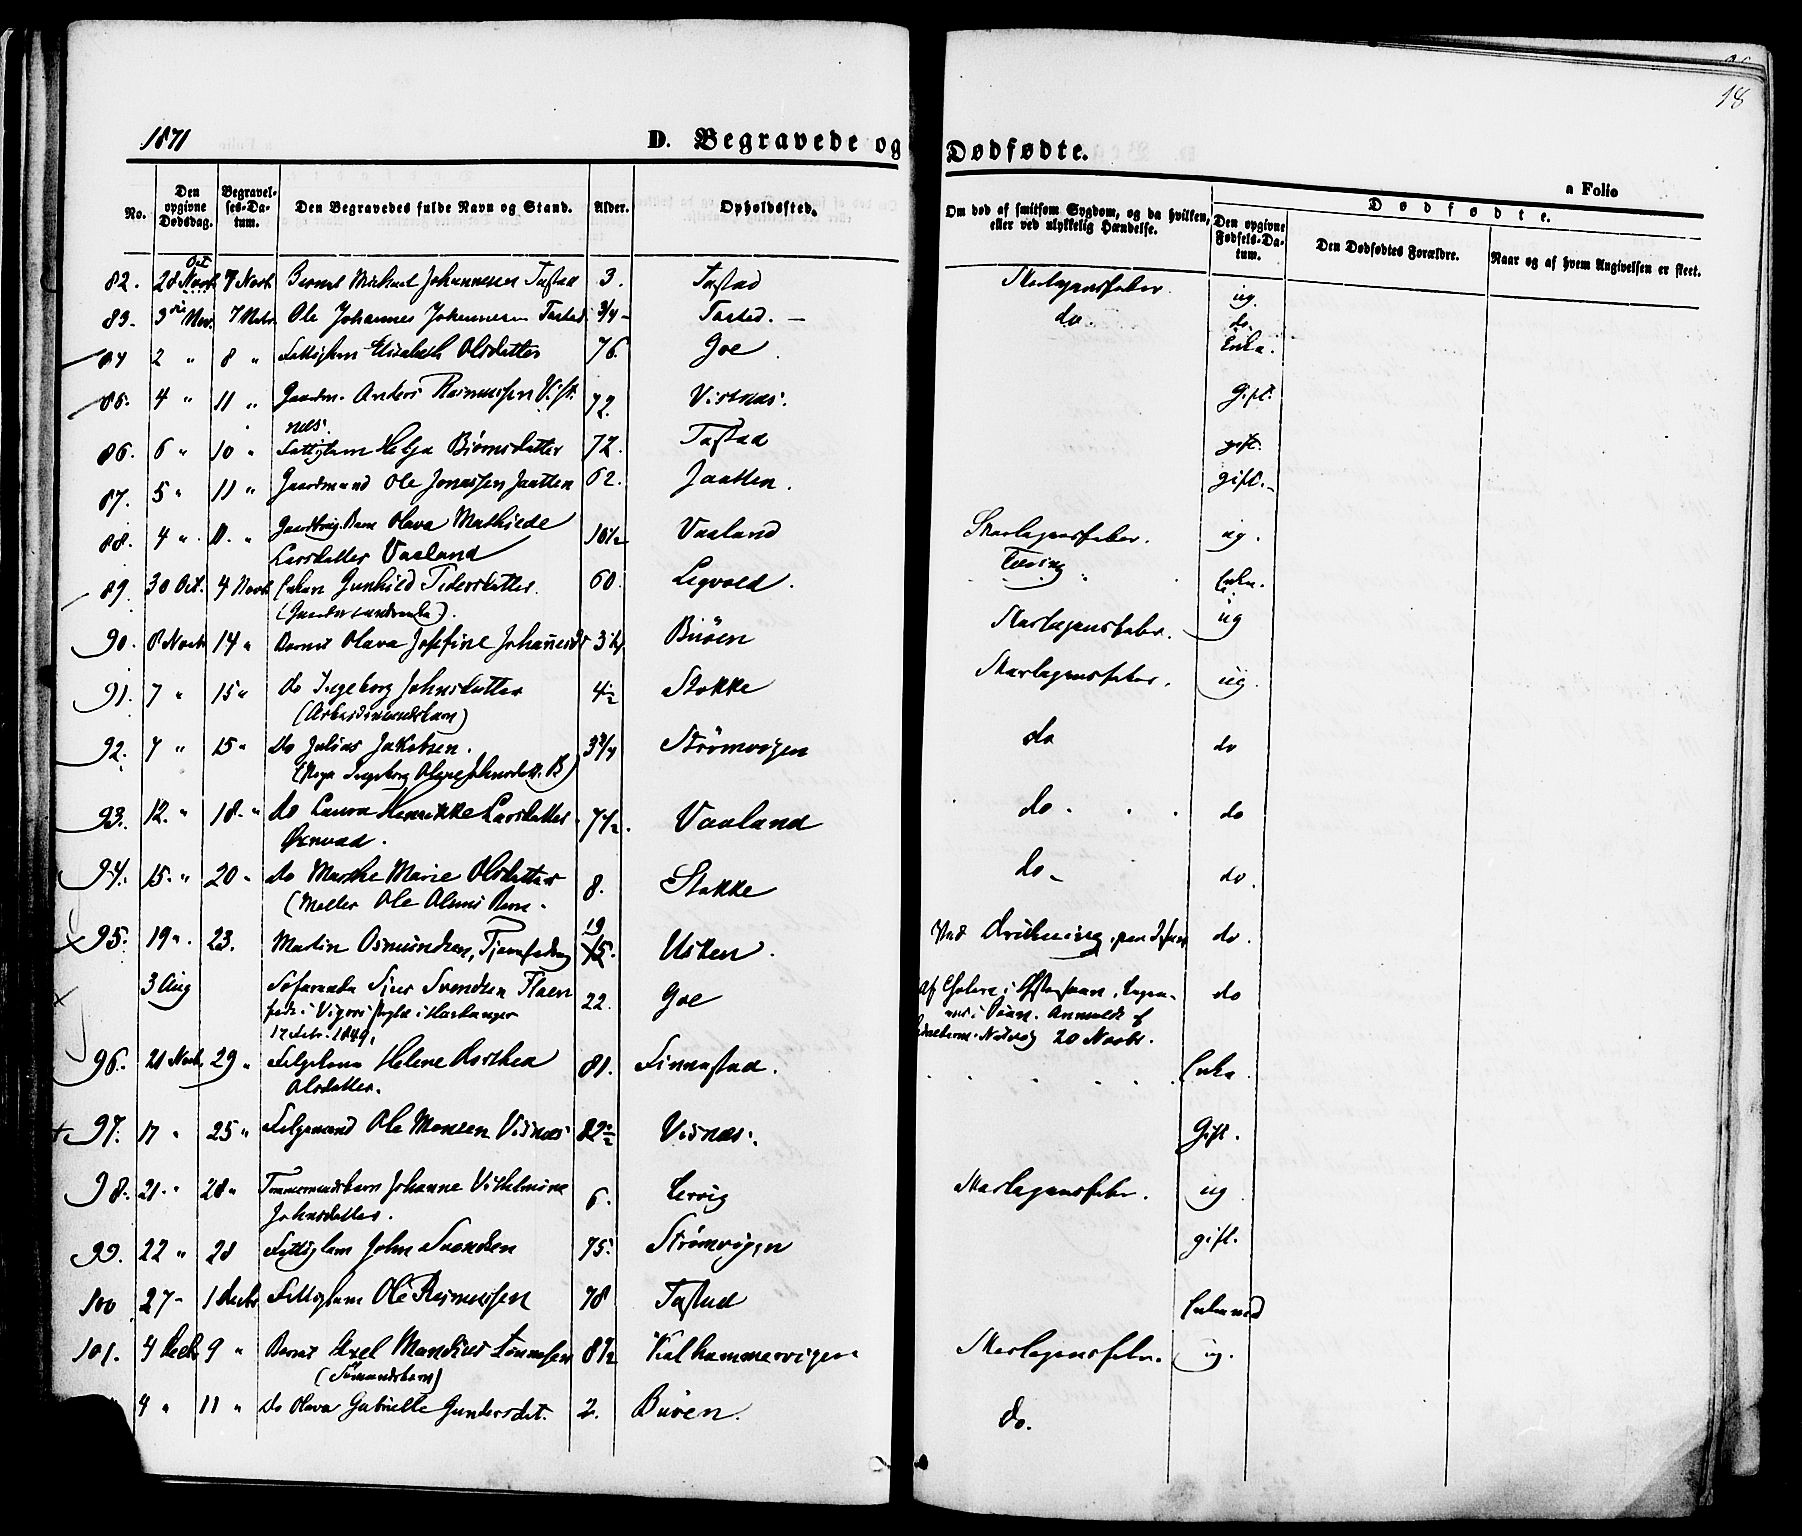 18
1871
D. Begravede og Dødfødte.
a Folio
No.
Den opgivne Dødsdag.
Begravelses-Datum.
Den Begravedes fulde Navn og Stand.
Alder.
Opholdssted.
Om død af smitsom Sygdom, og da hvilken, eller ved ulykkelig Hændelse.
Dødfødte.
Den opgivne Fødsels-Datum.
Den Dødfødtes Forældre.
Naar og af hvem Angivelsen er skeet.
82. 28 Oct 7 Novb Barnet Michael Johannesen Tastad 3. Tastad Skarlagensfeber. ug.
83. 3 Nov. 7 Nov. Ole Johannes Johannesen Tasted 3/4 Tasted. do do
84 2 " 8 " Fattiglem Elisabeth Olsdatter 76. Goe Enke.
85. 4 " 11 " Gaardm. Anders Rasmussen Vist-
nes. 72. Vistnes. Gift.
86. 6 " 10 " Fattiglem Helga Biørnsdatter 72. Tastad gift.
87. 5 " 11 " Gaardmand Ole Jonassen Jaatten 62. Jaatten. gift.
88. 4 " 11. " Barn Olava Mathilde
Larsdatter Vaaland 10 1/2 Vaaland Skarlagensfeber. ug.
89. 30 Oct. 4 Novb Enken Gunhild Pedersdatter. 60. Tæring Enke.
90. 8 Novb 14 " Barnet Olava Josefine 3 1/4 Buøen Skarlagensfeber. ug
91. 7 " 15 " do Ingeborg Johnsdatter
(Arbeidsmandsbarn) 4 1/2 Stokke Skarlagensfeber. ug.
92. 7 " 15 " do Julius Jakobsen. 3 3/4 Strømvigen do do
93. 12. " 18. " do Laura Henrikke Larsdatter 7 1/2. Vaaland do. do
94. 15. " 20 " do Marthe Marie Olsdatter
(Møller Ole Olsens Barn. 8. Stokke do do.
95. 19 " 23. Martin Osmundsen, 19 15. Usken. Ved Drukning do.
3 Aug Svendsen 22. Goe Af Cholera i do
12 Febr. 1849.
20 Novbr.
96. 21 Novb. 29 " Helene Dorthea
Olsdatter. 81. Finnestad. Enke
97. 17 " 25 " Ole Monsen Visnæs 82 1/2 Visnæs. Gift.
98. 21. " 28 " Tømmermandsbarn Johanne Vilhelmine
Johnsdatter. 6. Lervig Skarlagensfeber. ug
99. 22 " 28 Fattiglem John Svendsen 75. Strømvigen gift.
100 27 1 Decbr Fattiglem Ole Rasmussen 78 Tastad Enkemand
101. 4 Decb. 9 " Barnet Axel Mandius Tønnesen
(Sømandsbarn) 8 1/2 Kalhammervigen Skarlagensfeber. ug.
4 " 11 " do Olava Gabrielle Gundersdat. 2. Buøen. do.